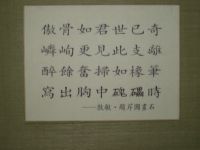 傲骨如君世已奇
嶙峋更見此支離
醉餘奮掃如椽筆
寫出胸中磈礧時
──敦敏·題芹圃畫石